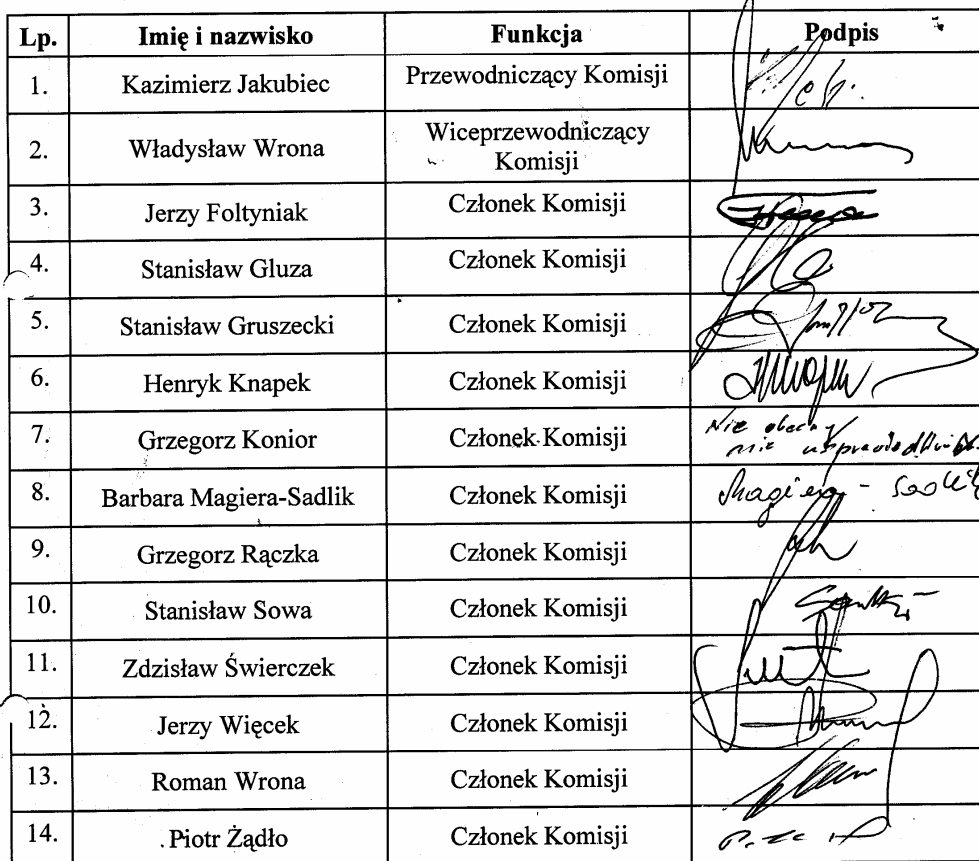 Lp. Imię i nazwisko Funkcja Podpis
1. Kazimierz Jakubiec Przewodniczący Komisji
2. Władysław Wrona Wiceprzewodniczący
Komisji
3. Jerzy Foltyniak Członek Komisji
4. Stanisław Gluza Członek Komisji
5. Stanisław Gruszecki Członek Komisji
6. Henryk Knapek Członek Komisji
7. Grzegorz Konior Członek Komisji Nie obecny
nie usprawiedliwiony
8. Barbara Magiera-Sadlik Członek Komisji Magiera - Sadlik
9. Grzegorz Rączka Członek Komisji
10. Stanisław Sowa Członek Komisji
11. Zdzisław Świerczek Członek Komisji
12. Jerzy Więcek Członek Komisji
13. Roman Wrona Członek Komisji
14. Piotr Żądło Członek Komisji